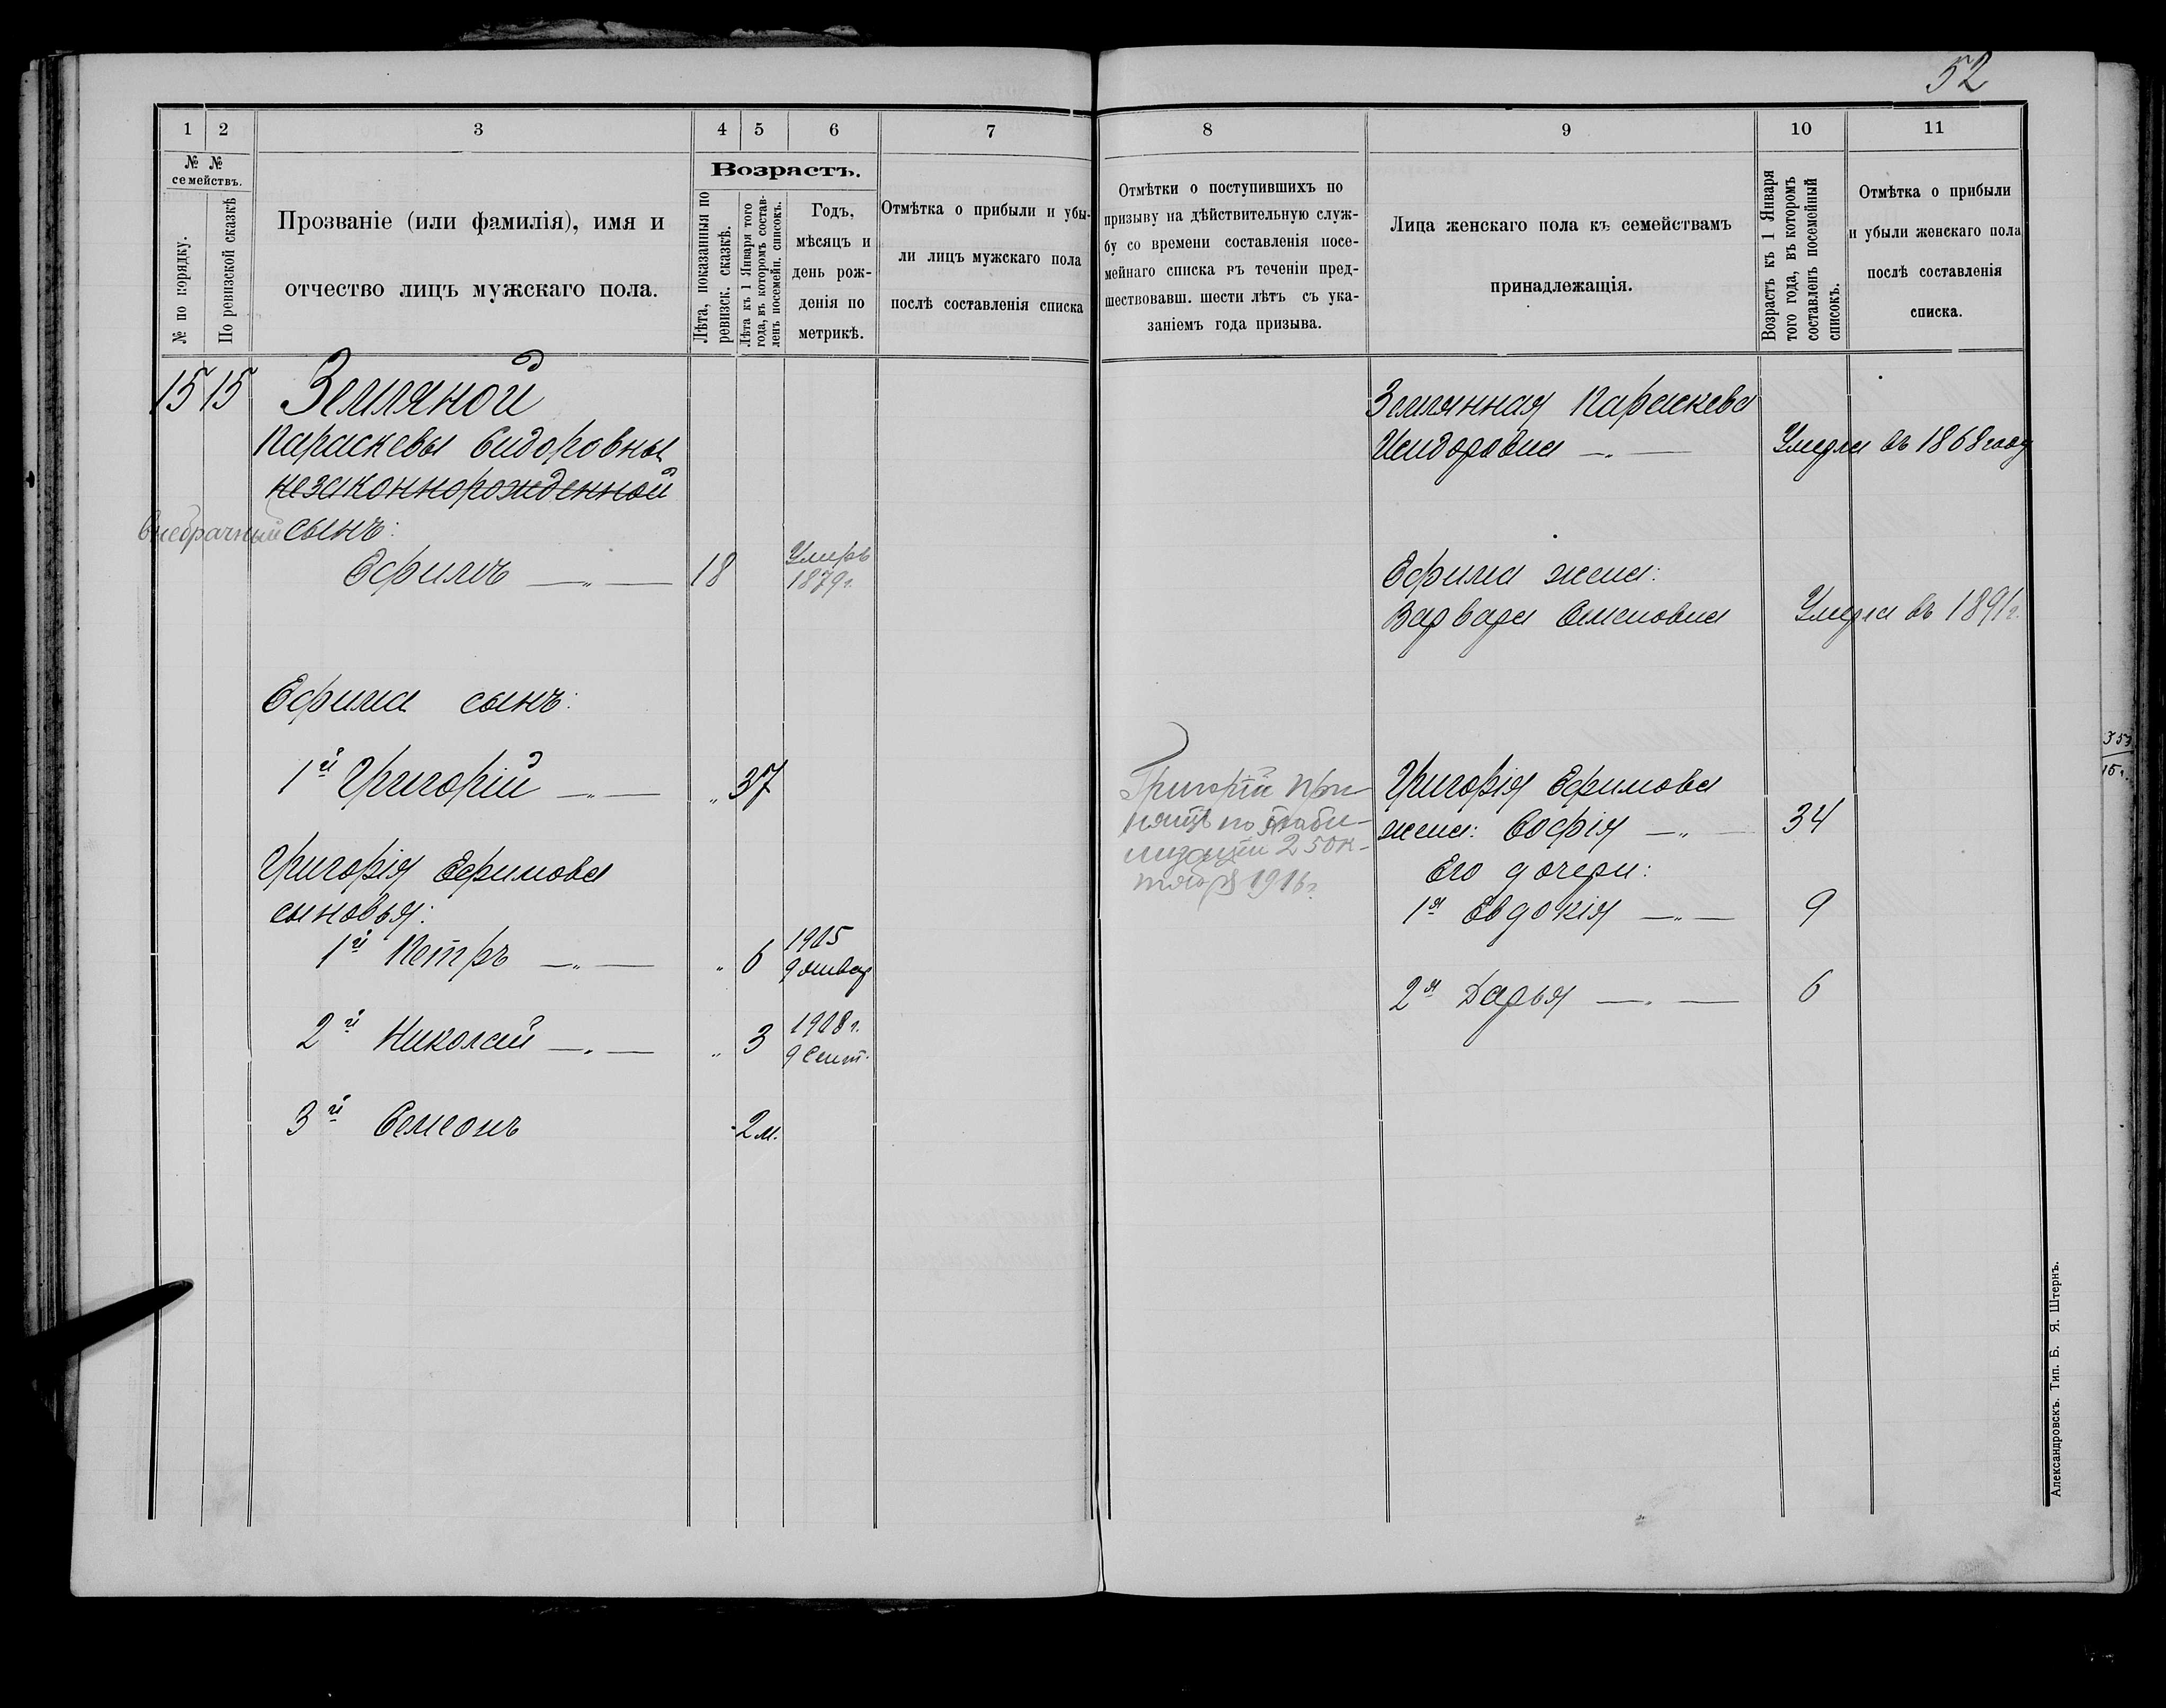 52
1 2 3 4 5 6 7
№ № семействъ.
№ по порядку.
По ревизской сказкѣ
Прозваніе (или фамилія), имя и
отчество лицъ мужскаго пола.
Возрастъ.
Лѣта, показанныя по
ревизск. сказкѣ.
Лѣта къ 1 Января того
года, въ которомъ состав-
ленъ посемейн. списокъ.
Годъ,
мѣсяцъ и
день рож-
денія по
метрикѣ.
Отмѣтка о прибыли и убы-
ли лицъ мужскаго пола
послѣ составленія списка
15 15 Земляной
Параскевы Сидоровны
незаконнорожденной
внебрачный сынъ:
Ефимъ —„— 18 Умеръ
1879г.
Ефима сынъ:
1й Григорій —„— „ 37
Григорія Ефимова
сыновья:
1й Петръ —„— „ 6 1905
9 январ
2й Николай —„— „ 3 1908 г.
9 Сент.
3й Семеонъ 2 м.
8 9 10 11
Отмѣтки о поступившихъ по
призыву на дѣйствительную служ-
бу со времени составленія посе-
мейнаго списка въ теченіи пред-
шествовавш. шести лѣтъ съ ука-
заніемъ года призыва.
Лица женскаго пола къ семействамъ
принадлежащія.
Возрастъ къ 1 Января
того года, въ которомъ
составленъ посемейный
списокъ.
Отмѣтка о прибыли
и убыли женскаго пола
послѣ составленія
списка.
Землянная Параскева
Исидоровна —„— Умерла въ 1868 году
Ефима жена:
Варвара Семеновна Умерла въ 1891 г.
Григорій при-
нятъ по мобили-
зации 25 Ок-
тября 1916 г.
Григорія Ефимова
жена: Софія —„— 34
Его дочери:
1я Евдокія —„— 9
2я Дарья —„— 6
Александровскъ. Тип. Б. Я. Штернъ.